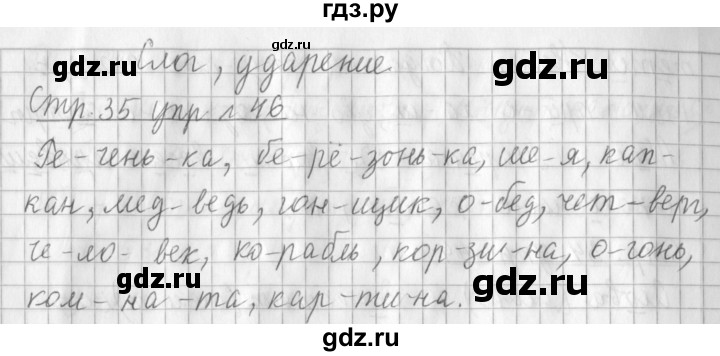 гдз.ру
Слог, ударение
gdz.ru gdz.ru gdz.ru
Стр. 35 упр. 46
Ре-чень-ка, бе-рё-зонь-ка, ше-я, кап-
gdz.ru gdz.ru
кан, мед-ведь, гон-щик, о-бед, чет-верг,
че-ло-век, ко-рабль, кор-зи-на, о-гонь,
gdz.ru gdz.ru
ком-на-та, кар-ти-на.
gdz.ru